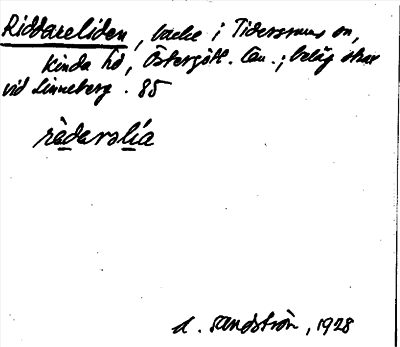 Riddareliden, backe i Tidersrums sn,
Kinda hd, Östergötl. län.; beläg strax
vid Linneberg. 85
rèdarslía
A. Sandström, 1928